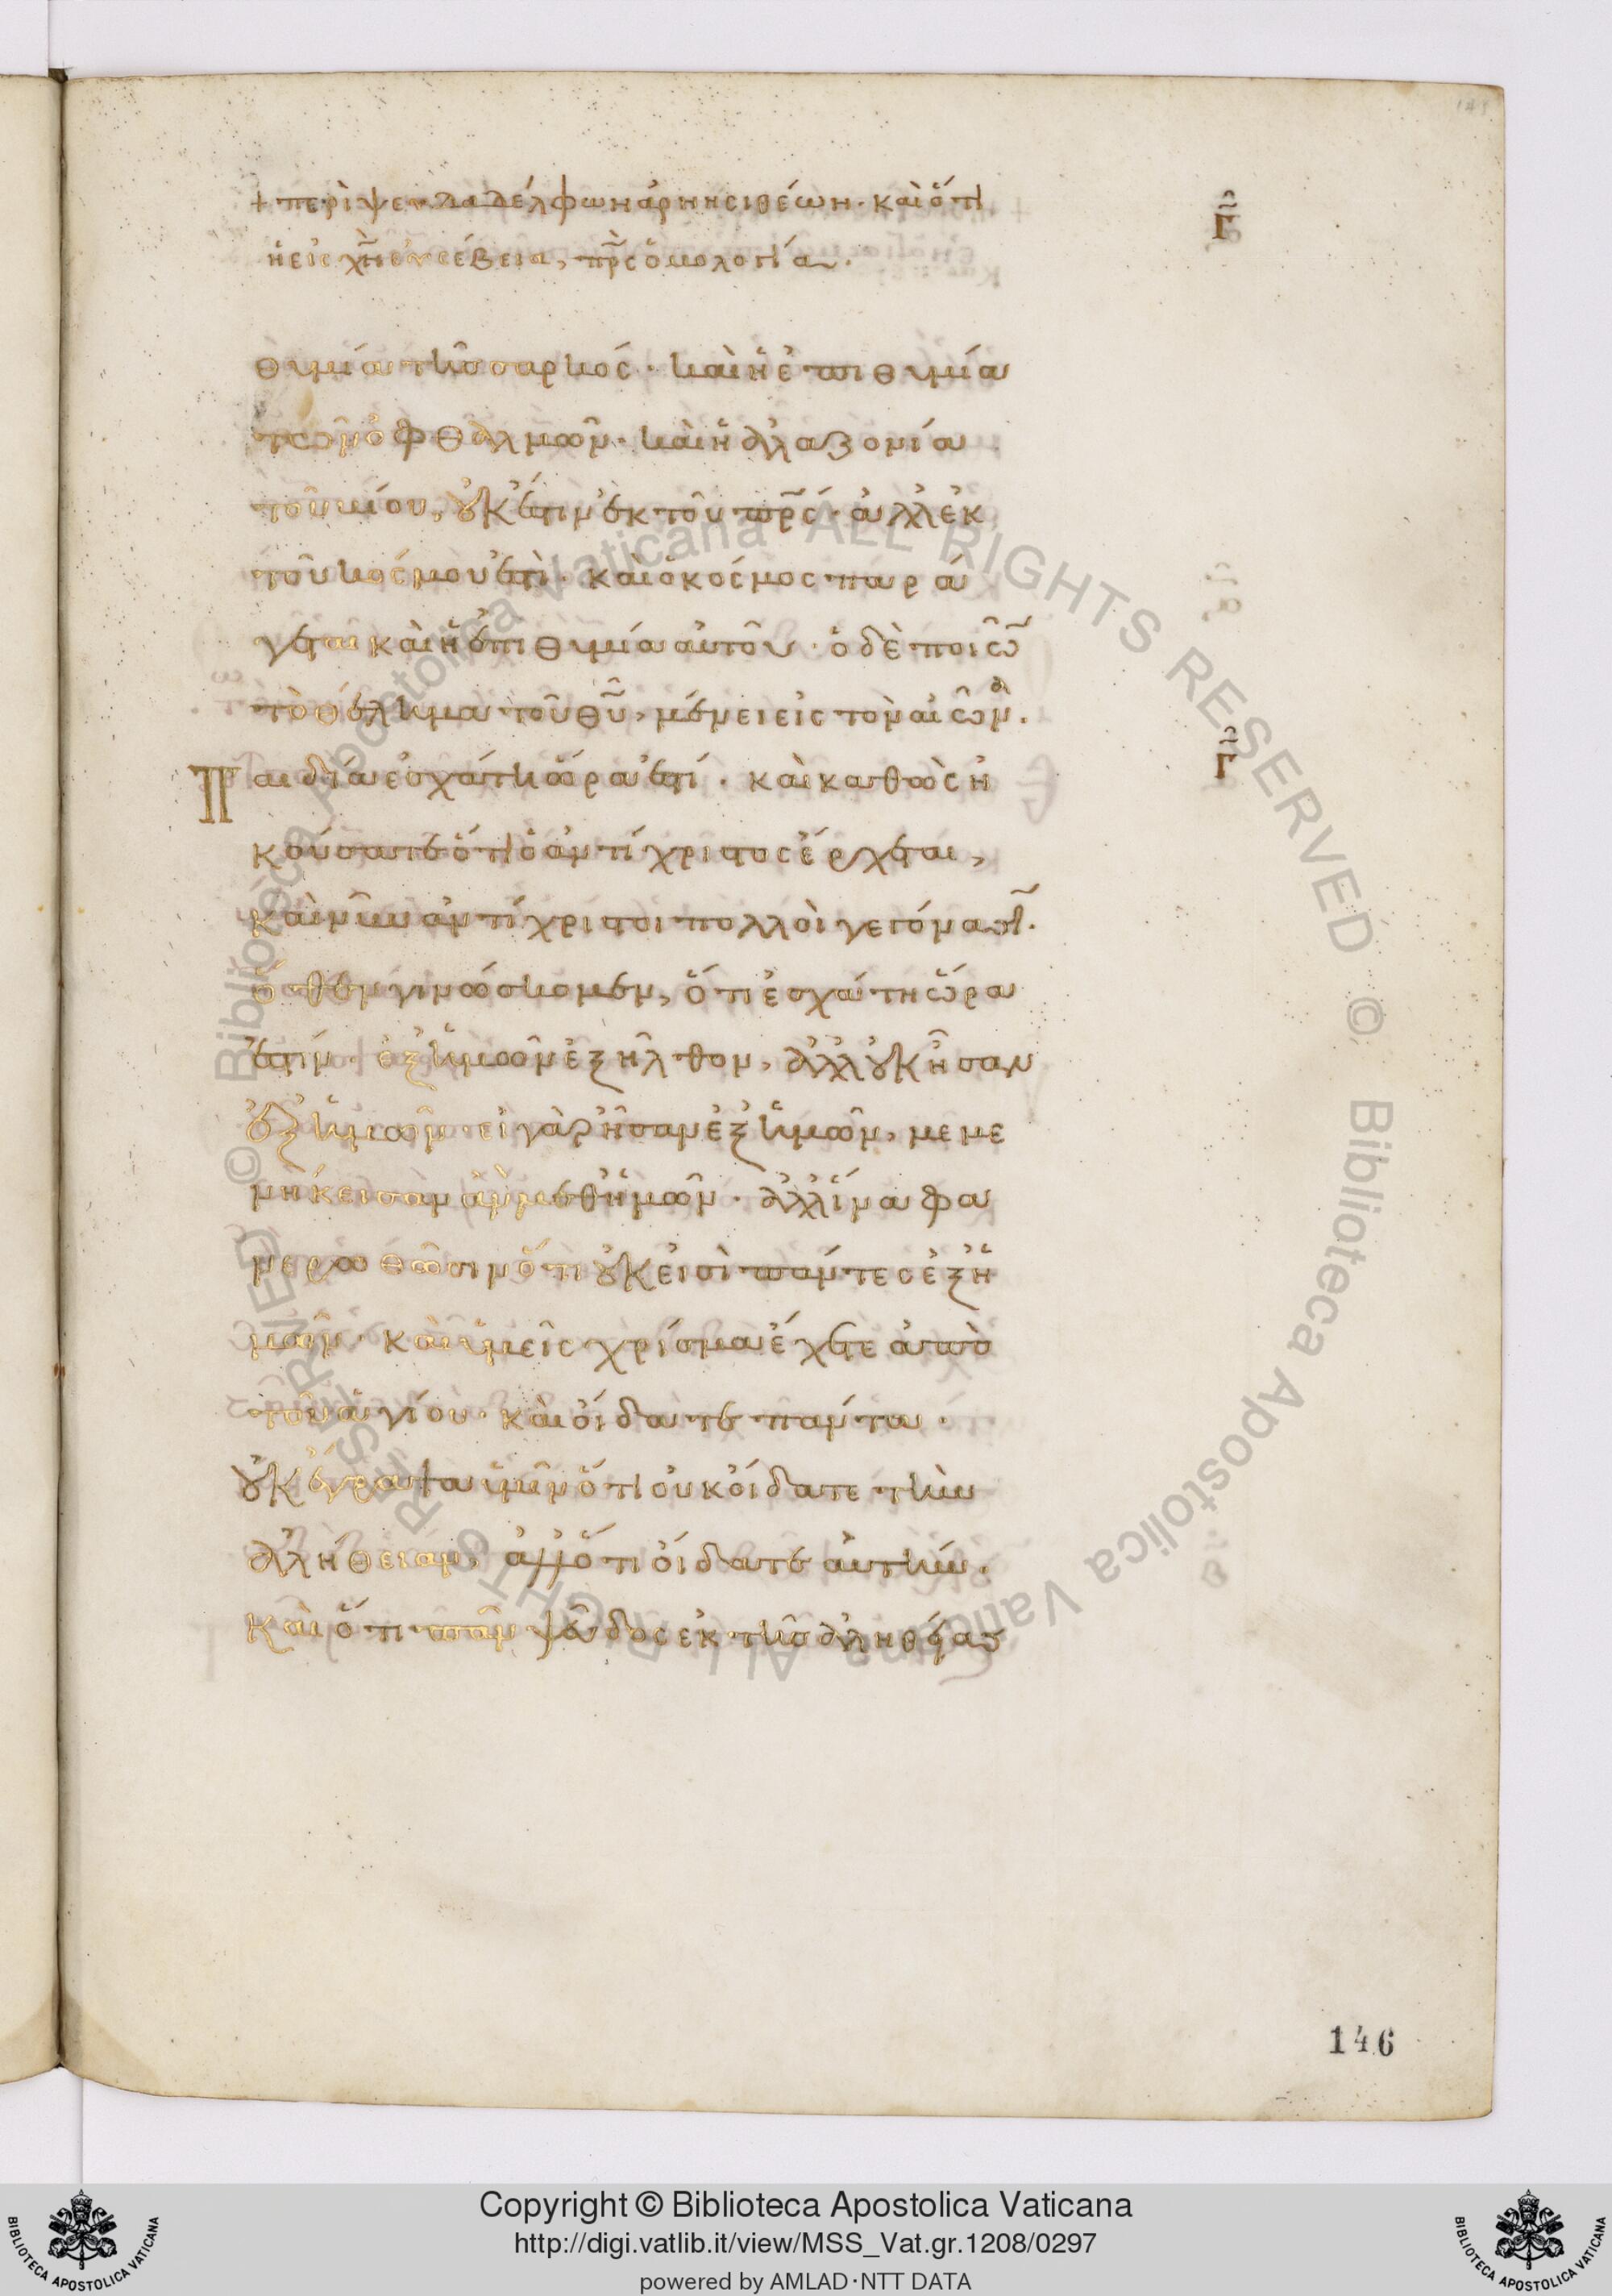 + περὶ ψευδαδέλφων ἀρνησιθέων· καὶ ὅτι
ἡ εἰς χ̅ν̅ εὐσέβεια, π̅ρ̅ς ὁμολογία.
Γ
θυμία τῆς σαρκός· καὶ ἡ ἐπιθυμία
τῶν ὀφθαλμῶν· καὶ ἡ ἀλαζονία
τοῦ βίου, οὐκ ἔστιν ἐκ τοῦ π̅ρ̅ς· ἀλλ ἐκ
τοῦ κόσμου ἐστὶ· καὶ ὁ κόσμος παρά
γεται καὶ ἡ ἐπιθυμία αὐτοῦ· ὁ δὲ ποιῶ̅
τὸ θέλημα τοῦ θ̅υ̅, μένει εἰς τὸν αἰῶνα.
Γ
Παιδία ἐσχάτη ὥρα ἐστί· καὶ καθὼς ἠ
κούσατε ὅτι ὁ ἀντίχριστος ἔρχεται,
καὶ νῦν ἀντίχριστοι πολλοὶ γεγόνασι̅.
ὅθεν γινώσκομεν, ὅτι ἐσχάτη ὥρα
ἐστίν· ἐξ ἡμῶν ἐξῆλθον, ἀλλ οὐκ ἦσαν
ἐξ ἡμῶν· εἰ γὰρ ἦσαν ἐξ ἡμῶν, μεμε
νήκεισαν ἂν μεθ ἡμῶν· ἀλλ ἵνα φα
νερωθῶσιν ὅτι οὐκ εἰσὶ πάντες ἐξ ἡ
μῶν· καὶ ὑμεῖς χρίσμα ἔχετε ἀπὸ
τοῦ ἁγίου· καὶ οἴδατε πάντα·
οὐκ ἔγραψα ὑμῖν ὅτι οὐκ οἴδατε τὴν
ἀλήθειαν, ἀλλ ὅτι οἴδατε αὐτήν.
καὶ ὅτι πᾶν ψεῦδος ἐκ τῆς ἀληθείας
146
© Biblioteca Apostolica Vaticana ALL RIGHTS RESERVED © Biblioteca Apostolica Vaticana ALL RIGHTS RESERVED
Copyright © Biblioteca Apostolica Vaticana
http://digi.vatlib.it/view/MSS_Vat.gr.1208/0297
powered by AMLAD·NTT DATA
BIBLIOTECA APOSTOLICA VATICANA
BIBLIOTECA APOSTOLICA VATICANA